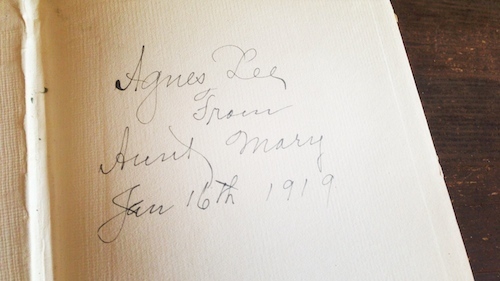 Agnes Lee
From
Aunt Mary
Jan 16th 1919